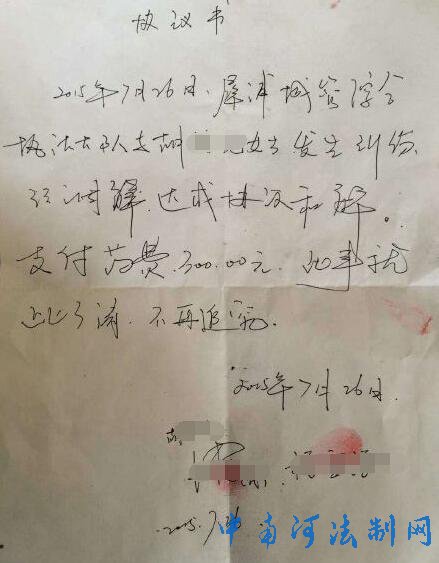 协议书
2015年7月26日,犀浦城管综合
执法大队与胡 女士发生纠纷,
经调解,达成协议和解。
支付药费,300.00元,此事就
此了清,不再追究。
2015年7月26日.
2015.7.26.
中南河法制网